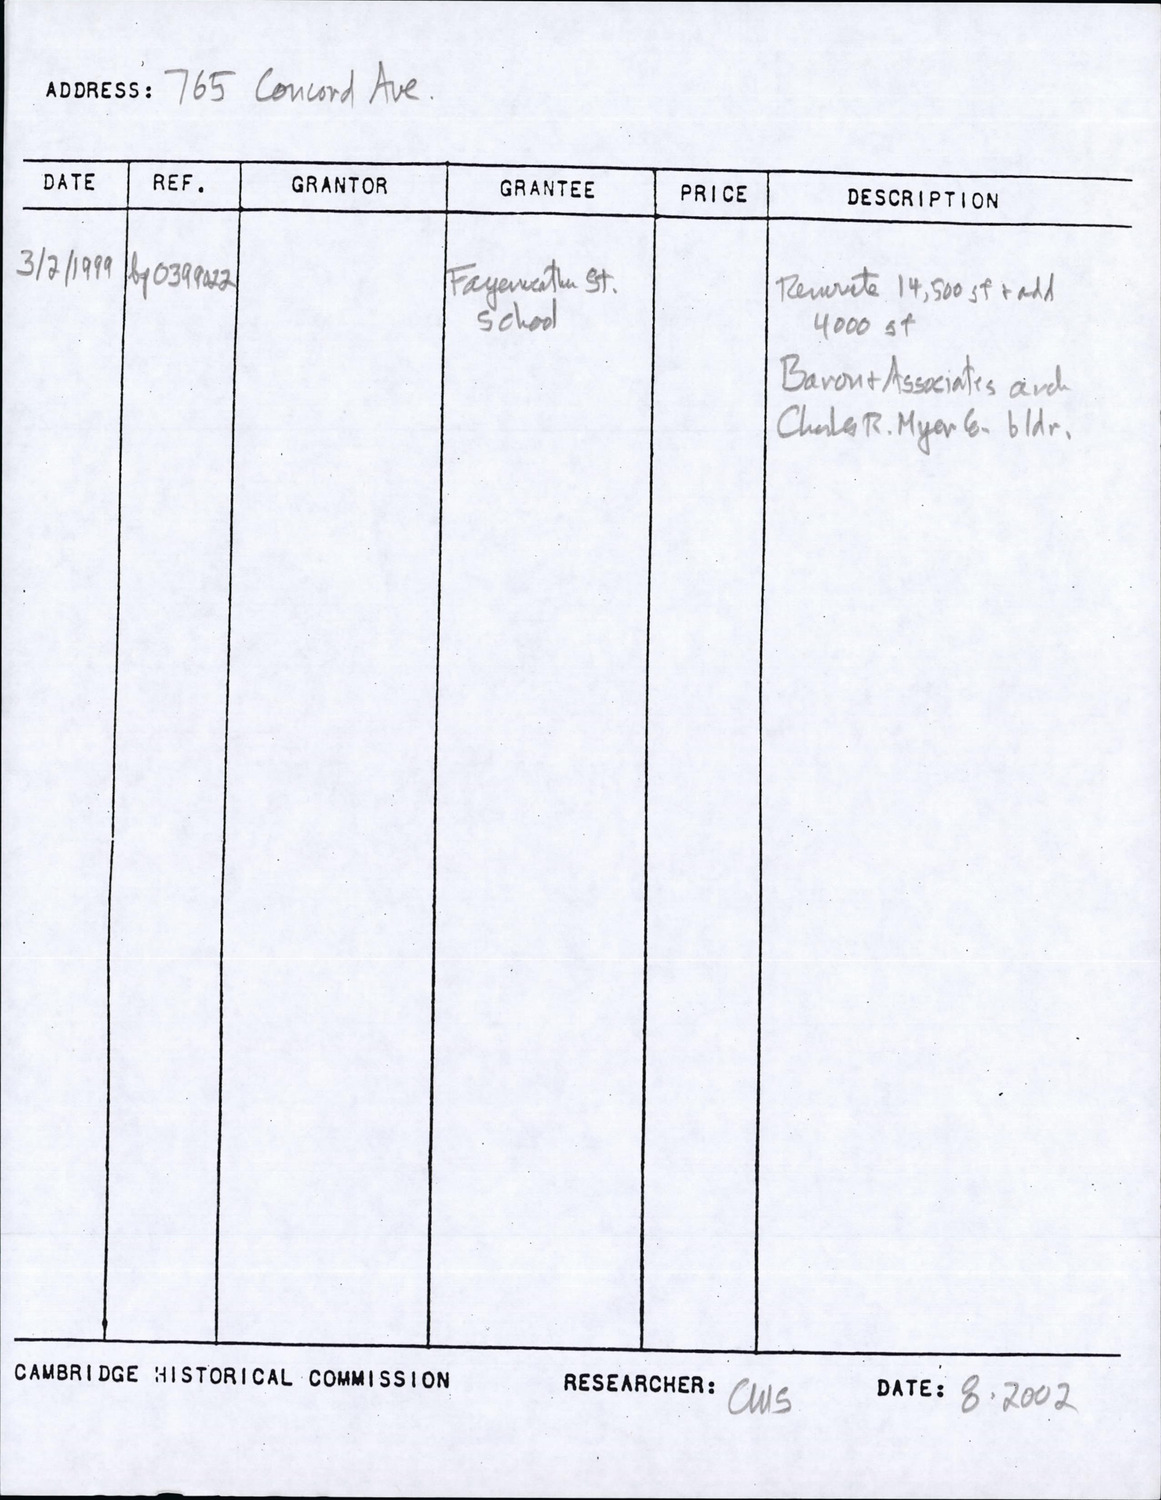 ADDRESS: 765 Concord Ave.
DATE REF. GRANTOR GRANTEE PRICE DESCRIPTION
3/2/1999 bp0399022 Fayerweather St. Renovate 14,500 sf + add
School 4000 sf
Baron + Associates arch
Charles R. Myer Co. bldr.
CAMBRIDGE HISTORICAL COMMISSION RESEARCHER: CMS DATE: 8.2002